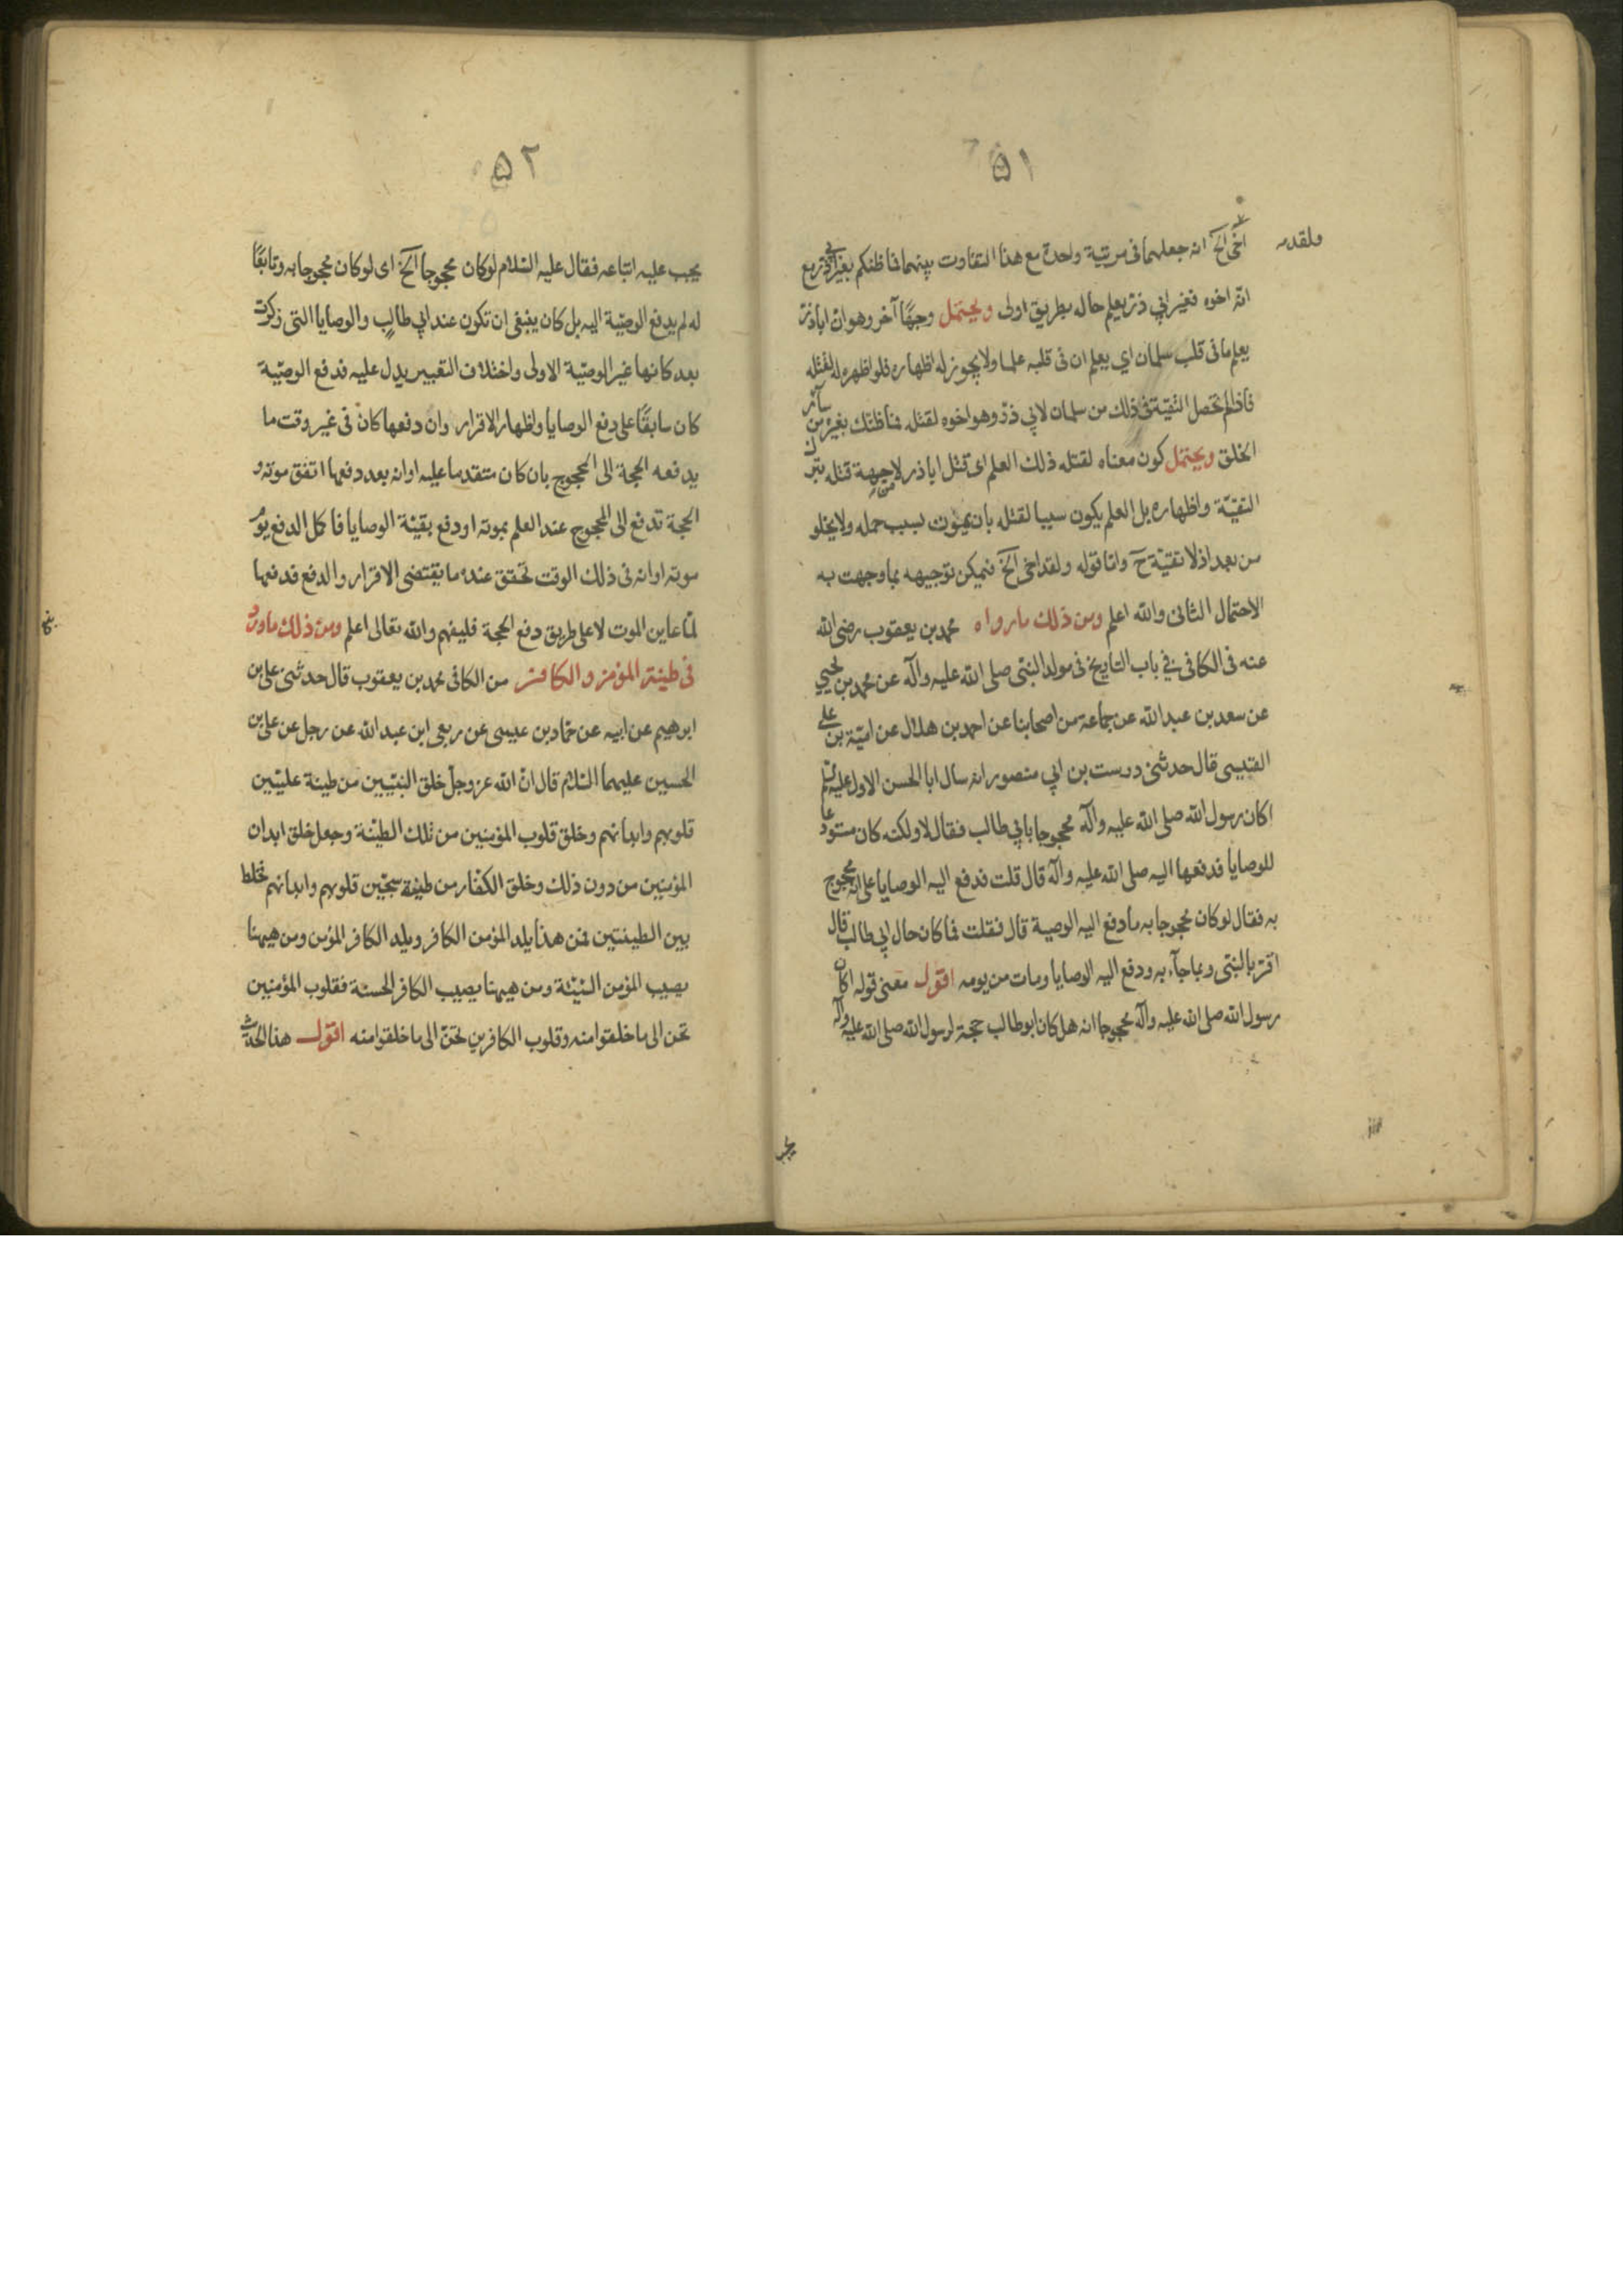 ٥١
ولقد
اخى الخ انه جعلهما فى مرتبة واحدة مع هذا التفاوت بينهما فما ظنكم بغير ابي ذر مع
انه اخوه فغير ابي ذر يعلم حاله بطريق اولى ويحتمل وجهًا آخر وهو ان اباذر
يعلم ما فى قلب سلمان اي يعلم ان فى قلبه علما ولا يجوز له اظهاره فلو اظهره له لقتله
فاذا لم تحصل التقية فى ذلك من سلمان لابي ذر وهو اخوه لقتله فما ظنك بغيره من سآئر
الخلق ويحتمل كون معناه لقتله ذلك العلم اى قتل اباذر لا من جهة قتله بترك
التقيّة واظهاره بل العلم يكون سببا لقتله بان يموت بسبب حمله ولا يخلو
من بعد اذ لا تقيّة ح واما قوله ولقد اخى الخ فيمكن توجيهه بما وجهت به
الاحتمال الثانى والله اعلم ومن ذلك ما رواه محمد بن يعقوب رضى الله
عنه فى الكافى في باب التاريخ فى مولد النبى صلى الله عليه وآله عن محمد بن يحيي
عن سعد بن عبدالله عن جماعة من اصحابنا عن احمد بن هلال عن اميّة بن على
القيسى قال حدثنى درست بن ابي منصور انه سال ابا الحسن الاول عليه السلم
اكان رسول الله صلى الله عليه وآله محجوجا بابي طالب فقال لا ولكنه كان مستودعا
للوصايا فدفعها اليه صلى الله عليه وآله قال قلت فدفع اليه الوصايا على انه محجوج
به فقال لو كان محجوجا به ما دفع اليه الوصية قال فقلت فما كان حال ابي طالب قال
اقرّ بالنبى وبما جآء به ودفع اليه الوصايا ومات من يومه اقول معنى قوله اكان
رسول الله صلى الله عليه وآله محجوجا انه هل كان ابو طالب حجة لرسول الله صلى الله عليه وآله
يجب
٥٢
يجب عليه اتباعه فقال عليه السّلام لو كان محجوجا الخ اى لو كان محجوجا به وتابعًا
له لم يدفع الوصيّة اليه بل كان ينبغى ان تكون عند ابي طالب والوصايا التى ذكرت
بعد كانها غير الوصيّة الاولى واختلاف التعبير يدل عليه فدفع الوصيّة
كان سابقًا على دفع الوصايا واظهار الاقرار وان دفعها كان فى غير وقت ما
يدفعه الحجة الى المحجوج بان كان متقدما عليه او انه بعد دفعها اتفق موته و
الحجة تدفع الى المحجوج عند العلم بموته او دفع بقيّة الوصايا فاكمل الدفع يوم
موته او انه فى ذلك الوقت تحقق عنده ما يقتضى الاقرار والدفع فدفعها
لمّا عاين الموت لا على طريق دفع الحجة فليفهم والله تعالى اعلم ومن ذلك ما ورد
فى طينة المؤمن والكافر من الكافى محمد بن يعقوب قال حدثنى على بن
ابرهيم عن ابيه عن حمّاد بن عيسى عن ربعى ابن عبدالله عن رجل عن على بن
الحسين عليهما السّلام قال انّ الله عز وجلّ خلق النبيّين من طينة علّيّين
قلوبهم وابدانهم وخلق قلوب المؤمنين من تلك الطينة وجعل خلق ابدان
المؤمنين من دون ذلك وخلق الكفّار من طينة سجّين قلوبهم وابدانهم فخلط
بين الطينتين فمن هذا يلد المؤمن الكافر ويلد الكافر المؤمن ومن هيهنا
يصيب المؤمن السّيّئة ومن هيهنا يصيب الكافر الحسنة فقلوب المؤمنين
تحن الى ما خلقوا منه وقلوب الكافرين تحنّ الى ما خلقوا منه اقول هذا الحديث